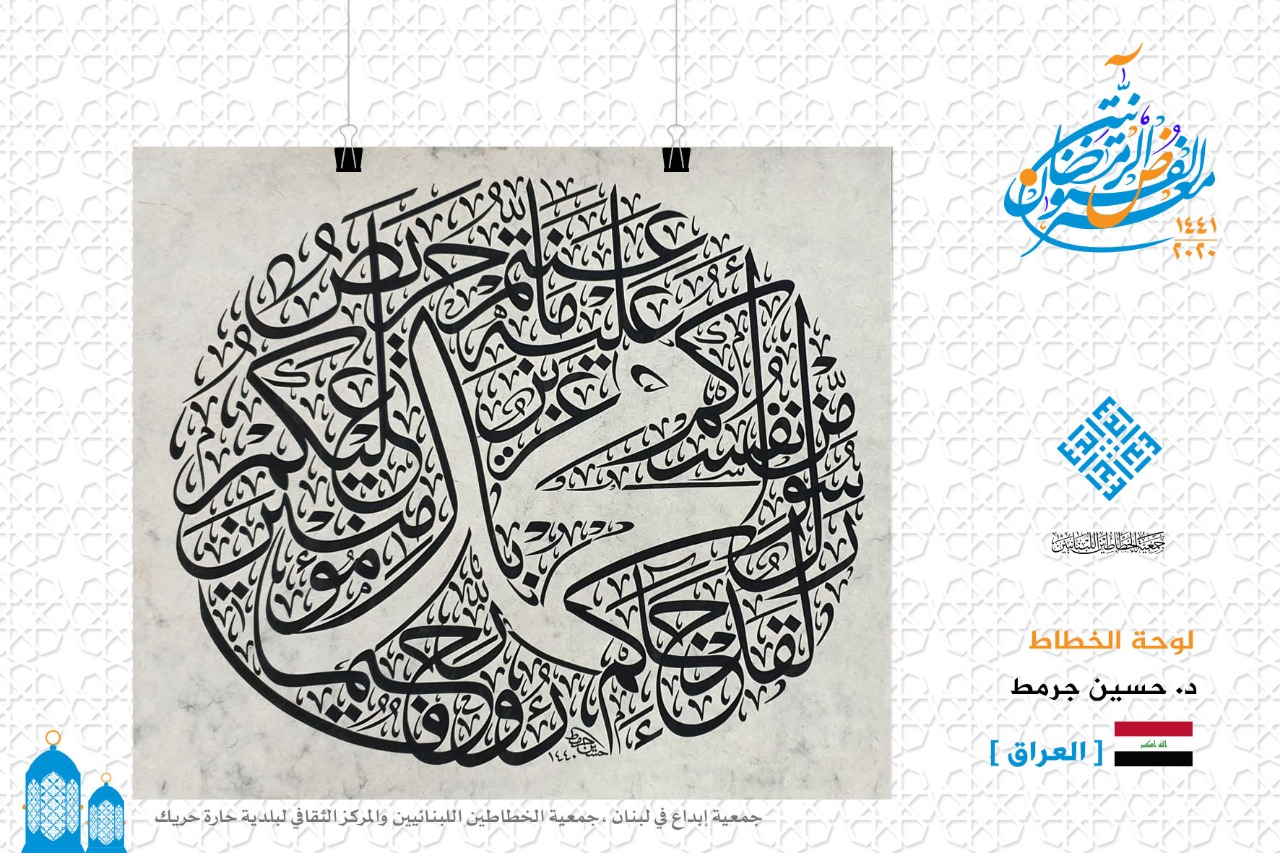 معرض الفنون الرمضانية
١٤٤١
٢٠٢٠
لقد جاءكم رسول من أنفسكم عزيز عليه ما عنتم حريص عليكم بالمؤمنين رؤوف رحيم
حسين جرمط
١٤٤٠
جمعية الخطاطين اللبنانيين
لوحة الخطاط
د. حسين جرمط
[ العراق ]
الله اكبر
جمعية إبداع في لبنان ، جمعية الخطاطين اللبنانيين والمركز الثقافي لبلدية حارة حريك